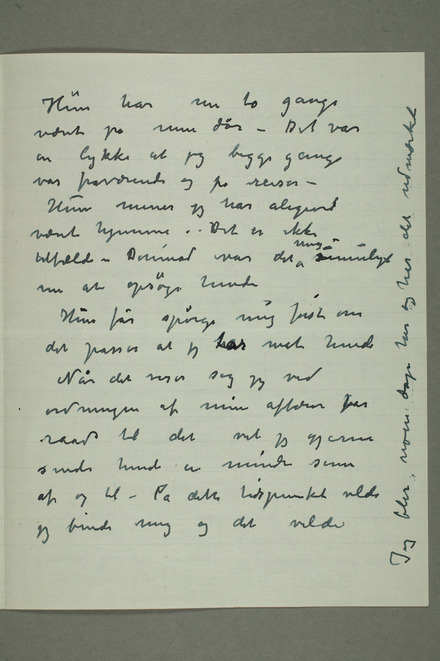 Hun har nu to gange
været på min dør – Det var
en lykke at jeg begge gange
var fraværende og på reiser –
Hun mener jeg har aligevel
været hjemme .. Det er ikke
tilfælde – Dermed var det mig umuligt
nu at opsøge hende
Hun får spørge mig først om
det passer at jeg har møt hende
Når det viser seg jeg ved
ordningen af mine affærer har
raad til det vil jeg gjerne
sende hende en mindre sum
af og til – På dette tidspunkt vilde
jeg binde mig og det vilde
Jeg blir nogen dage her og har det udmærket